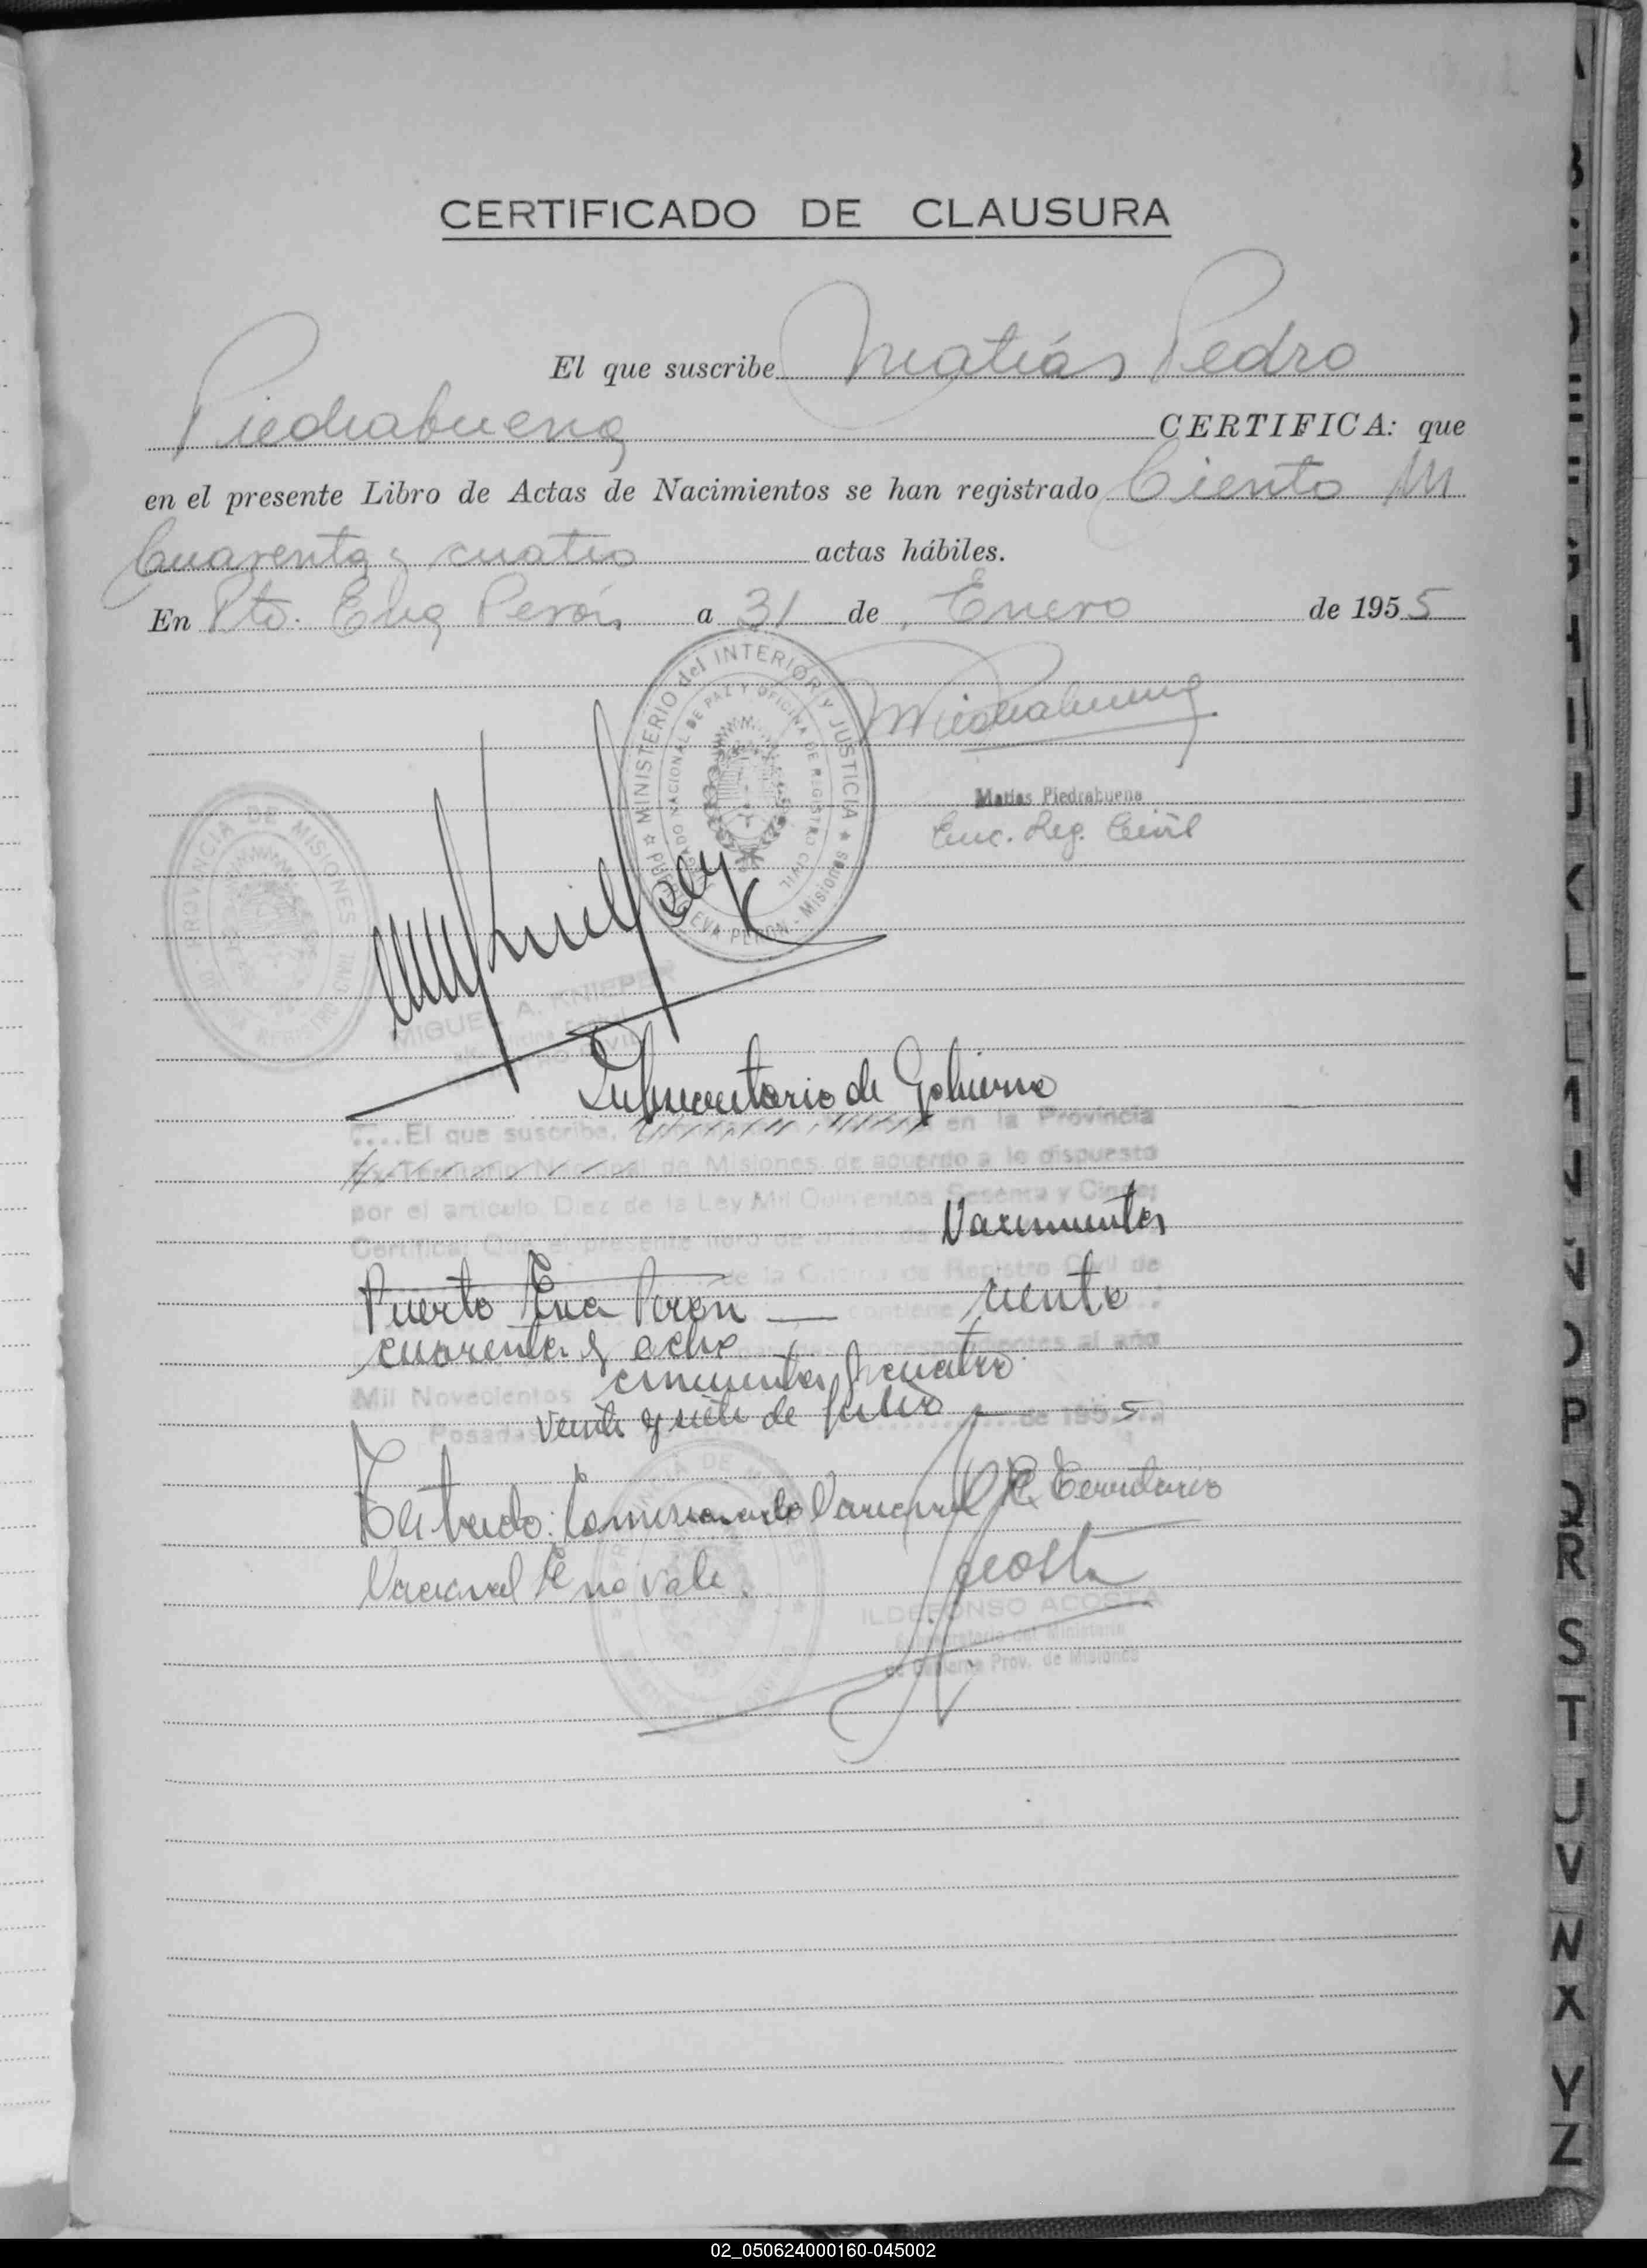 CERTIFICADO DE CLAUSURA
El que suscribe Matías Pedro
Piedrabuena CERTIFICA: que
en el presente Libro de Actas de Nacimientos se han registrado Ciento
Cuarenta y cuatro actas hábiles.
En Pto. Eva Perón a 31 de Enero de 1955
MINISTERIO del INTERIOR y JUSTICIA
JUZGADO NACIONAL DE PAZ Y OFICINA DE REGISTRO CIVIL
PUERTO EVA PERON - Misiones
Matias Piedrabuena
Enc. Reg. Civil
PROVINCIA DE MISIONES
REGISTRO CIVIL
MIGUEL A. KNIEPP
Subsecretario de Gobierno
....El que suscribe, en la Provincia
Ex-Territorio Nacional de Misiones, de acuerdo a lo dispuesto
por el artículo Diez de la Ley Mil Quinientos Sesenta y Cinco;
Certifica: Que el presente libro de actas de Nacimientos
de la Oficina de Registro Civil de
Puerto Eva Perón — contiene ciento
cuarenta y ocho correspondientes al año
Mil Novecientos cincuenta y cuatro.
Posadas, veinte y siete de Julio de 1955
Testado: Comisionado Nacional Ex Territorio
Nacional E no vale.
Acosta
ILDEFONSO ACOSTA
Subsecretario del Ministerio
de Gobierno Prov. de Misiones
A
B
J
K
L
O
P
Q
R
S
T
U
V
X
Y
Z
02_050624000160-045002